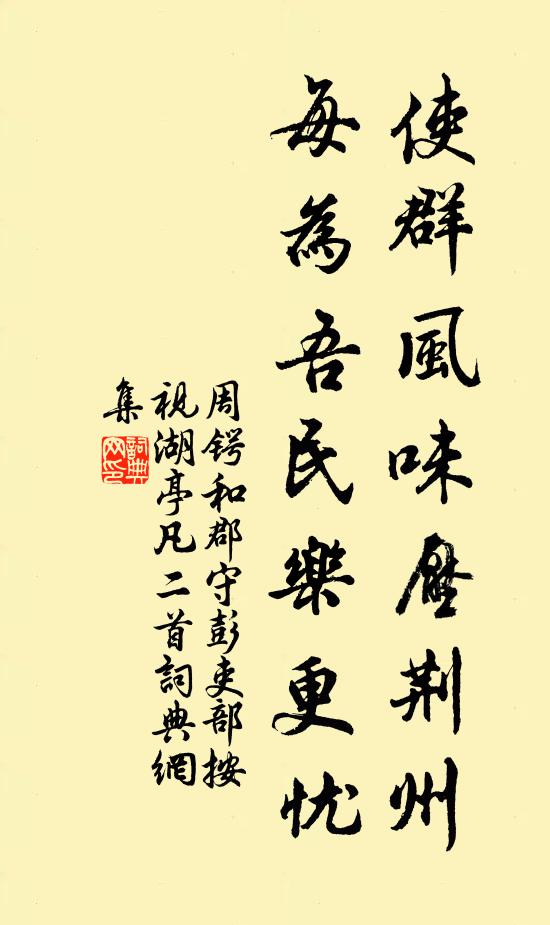 使群風味壓荆州
每為吾民樂更忧
周锷和郡守彭吏部按
視湖亭凡二首詞典網
集
詞典网印